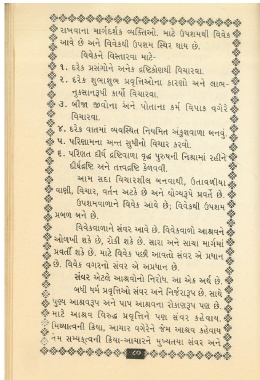 રાખવાના માર્ગદર્શક વ્યક્તિઓ. માટે ઉપશમથી વિવેક
આવે છે અને વિવેકથી ઉપશમ સ્થિર થાય છે.
વિવેકને વિસ્તારવા માટે-
૧. દરેક પ્રસંગોને અનેક દ્રષ્ટિકોણથી વિચારવા.
૨. દરેક શુભાશુભ પ્રવૃત્તિઓના કારણો અને લાભ-
નુકસાનરૂપી કાર્યો વિચારવા.
૩. બીજા જીવોના અને પોતાના કર્મ વિપાક વગેરે
વિચારવા.
૪. દરેક વાતમાં વ્યવસ્થિત નિયમિત અંકુશવાળા બનવું.
૫. પરિણામના અન્ત સુધીનો વિચાર કરવો.
૬. પરિણત દીર્ઘ દ્રષ્ટિવાળા વૃદ્ધ પુરુષની નિશ્રામાં રહીને
દીર્ઘદ્રષ્ટિ અને તત્ત્વદ્રષ્ટિ કેળવવી.
આમ સદા વિચારશીલ બનવાથી, ઉતાવળીયા
વાણી, વિચાર, વર્તન અટકે છે અને યોગ્યરૂપે પ્રવર્તે છે.
ઉપશમવાળાને વિવેક આવે છે; વિવેકથી ઉપશમ
પ્રબળ બને છે.
વિવેકવાળાને સંવર આવે છે. વિવેકવાળો આશ્રવને
ઓળખી શકે છે, રોકી શકે છે. સારા અને સાચા માર્ગમાં
પ્રવર્તી શકે છે. માટે વિવેક પછી આવતો સંવર એ પ્રધાન
છે. વિવેક વગરનો સંવર એ અપ્રધાન છે.
સંવર એટલે આશ્રવોનો નિરોધ. આ એક અર્થ છે.
બધી ધર્મ પ્રવૃત્તિઓ સંવર અને નિર્જરારૂપ છે. સાથે
પુણ્ય આશ્રવરૂપ અને પાપ આશ્રવના રોકાણરૂપ પણ છે.
માટે આશ્રવ વિરુદ્ધ પ્રવૃત્તિને પણ સંવર કહેવાય,
મિથ્યાત્વની ક્રિયા, આચાર વગેરેને જેમ આશ્રવ કહેવાય
તેમ સમ્યક્ત્વની ક્રિયા-આચારને મુખ્યતયા સંવર અને